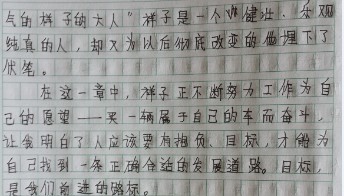 气的样子的大人”祥子是一个健壮、乐观
纯真的人,却又为以后彻底改变的他埋下了
伏笔。
在这一章中,祥子正不断努力工作为自
己的愿望——买一辆属于自己的车而奋斗,
让我明白了人应该要有抱负、目标,才能为
自己找到一条正确合适的发展道路。目标,
是我们前进的路标。